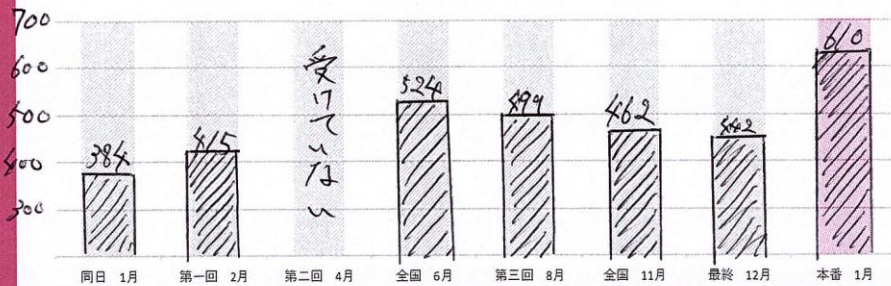 700
600
500
400
300
384
415
受けていない
524
499
462
442
610
同日 1月
第一回 2月
第二回 4月
全国 6月
第三回 8月
全国 11月
最終 12月
本番 1月